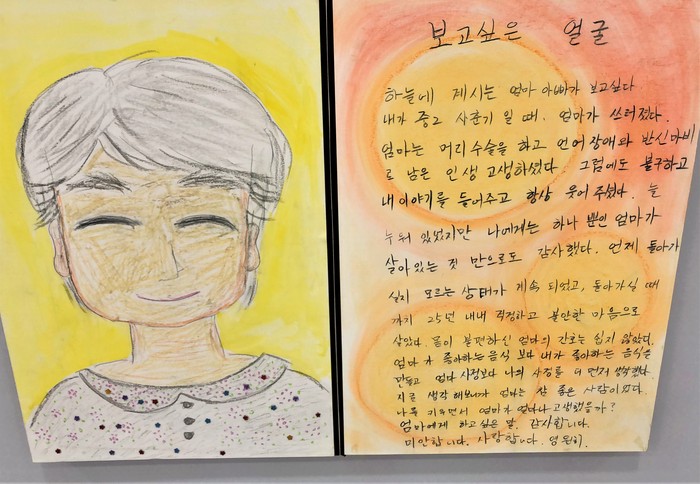 보고싶은 얼굴
하늘에 계시는 엄마 아빠가 보고싶다
내가 중2 사춘기 일 때. 엄마가 쓰러졌다.
엄마는 머리수술을 하고 언어장애와 반신마비
로 남은 인생 고생하셨다. 그럼에도 불구하고
내이야기를 들어주고 항상 웃어 주셨다. 늘
누워 있었지만 나에게는 하나 뿐인 엄마가
살아있는 것 만으로도 감사했다. 언제 돌아가
실지 모르는 상태가 계속 되었고, 돌아가실 때
까지 25년 내내 걱정하고 불안한 마음으로
살았다. 몸이 불편하신 엄마의 간호는 쉽지 않았다.
엄마가 좋아하는 음식 보다 내가 좋아하는 음식을
만들고 엄마 사정보다 나의 사정을 더 먼저 생각했다
지금 생각 해보니까 엄마는 참 좋은 사람이었다.
나를 키우면서 엄마가 얼마나 고생했을까?
엄마에게 하고싶은 말. 감사합니다.
미안합니다. 사랑합니다. 영원히.